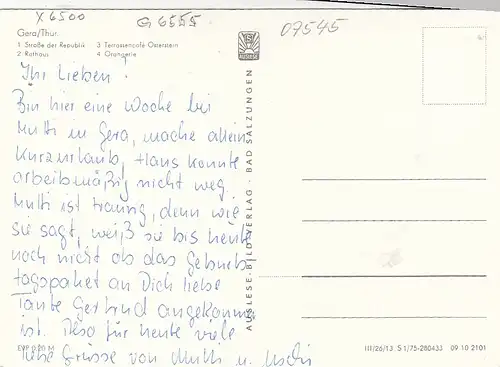 X 6500
G 6555
07545
Gera/Thür.
1 Straße der Republik 3 Terrassencafé Osterstein
2 Rathaus 4 Orangerie
Ihr Lieben.
Bin hier eine Woche bei
Mutti in Gera, mache allein
Kurzurlaub, Hans konnte
arbeitsmäßig nicht weg.
Mutti ist traurig, denn wie
sie sagt, weiß sie bis heute
noch nicht ob das Geburts
tagspaket an Dich liebe
Tante Gertrud angekommen
ist. Also für heute viele
liebe Grüsse von Mutti u. Uschi
EVP 0,20 M
AUSLESE-BILD-VERLAG · BAD SALZUNGEN
III/26/13 S 1/75-280433 09 10 2101